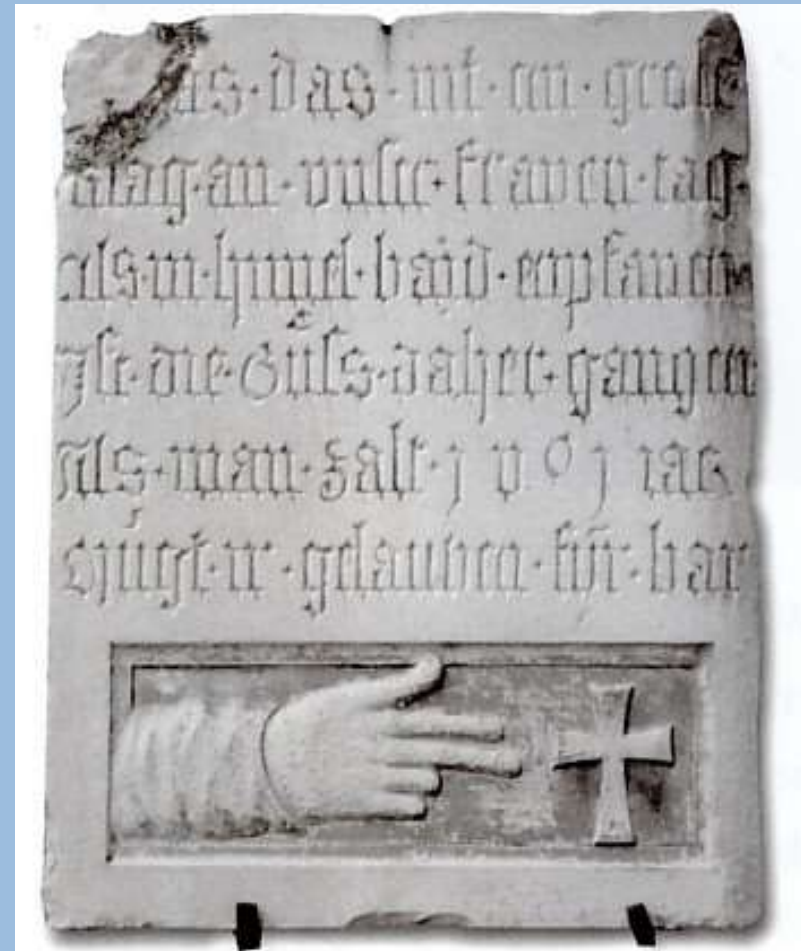 as · das · nit · ein · gross
mag · an · vnser · fraven · tag ·
als · in · himel · bajd · enpfangen
Jst · die · Güss · daher · gangen
Als · man · zalt · j v o j iar
mugt · ir · gelauben · für · bar